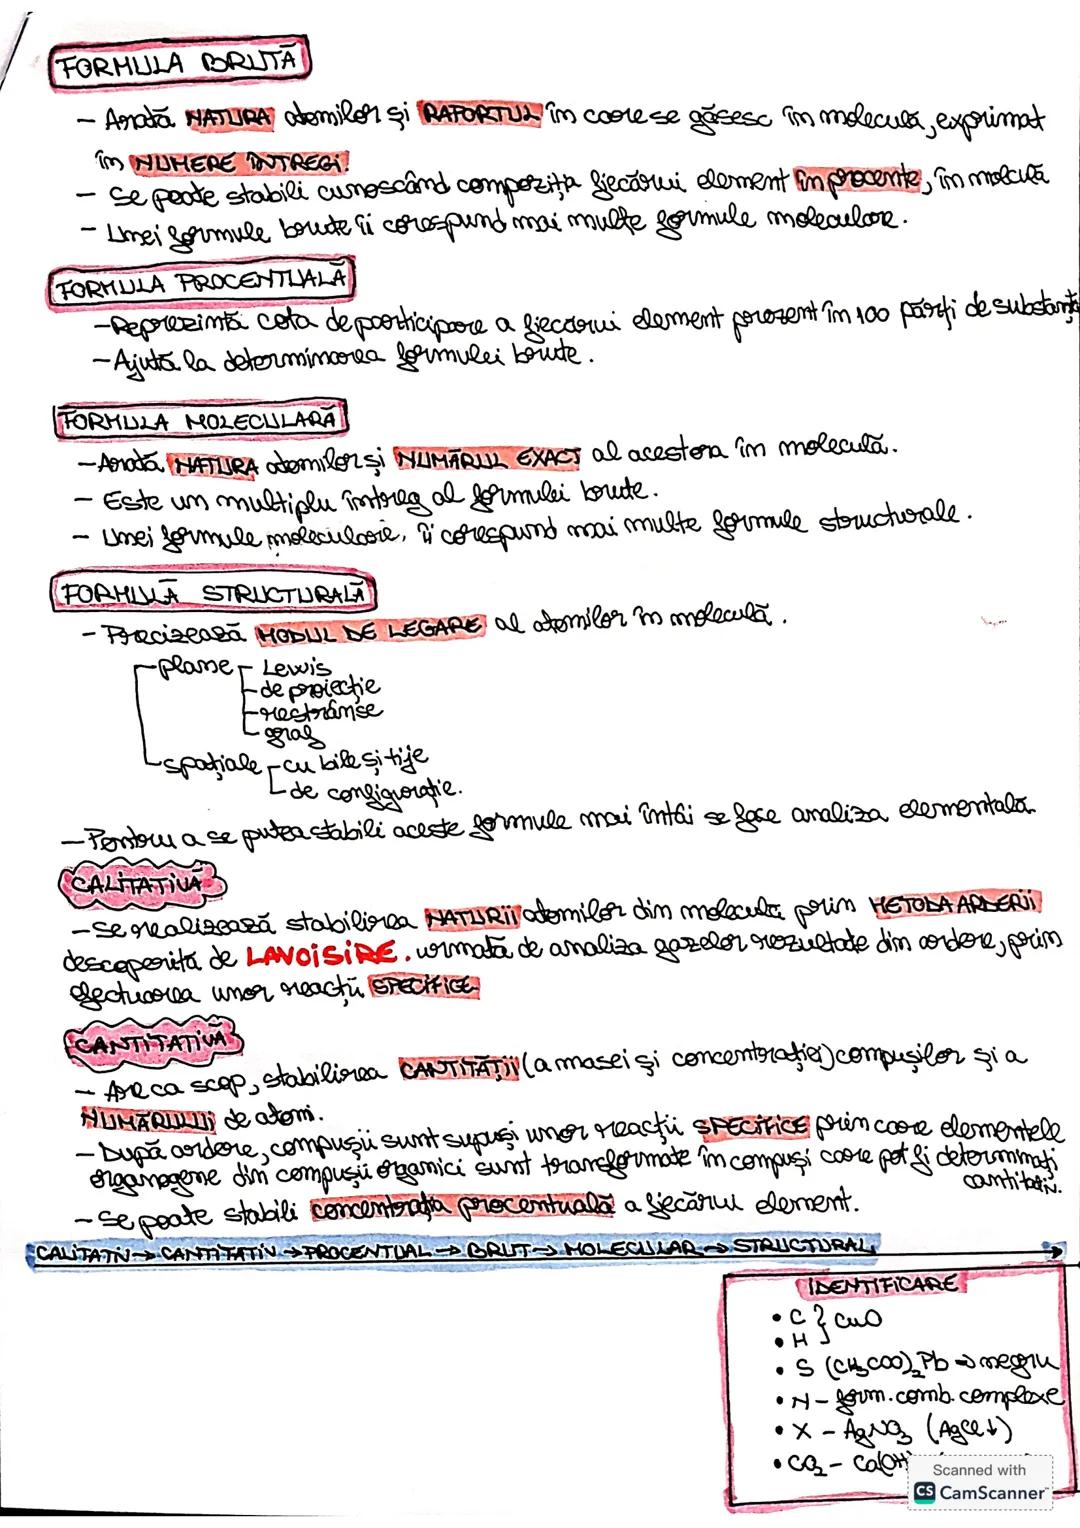 FORMULA BRUTĂ
- Arată NATURA atomilor și RAPORTUL în care se găsesc în moleculă, exprimat
în NUMERE ÎNTREGI!
- Se poate stabili cunoscând compoziția fiecărui element în procente, în moleculă
- Unei formule brute îi corespund mai multe formule moleculare.
FORMULA PROCENTUALĂ
- Reprezintă cota de participare a fiecărui element prezent în 100 părți de substanță
- Ajută la determinarea formulei brute.
FORMULA MOLECULARĂ
- Arată NATURA atomilor și NUMĂRUL EXACT al acestora în moleculă.
- Este un multiplu întreg al formulei brute.
- Unei formule moleculare, îi corespund mai multe formule structurale.
FORMULĂ STRUCTURALĂ
- Precizează MODUL DE LEGARE al atomilor în moleculă.
plane - Lewis
- de proiecție
- restrânse
- graf
spațiale - cu bile și tije
- de configurație.
- Pentru a se putea stabili aceste formule mai întâi se face analiza elementală.
CALITATIVĂ
- Se realizează stabilirea NATURII atomilor din moleculă prin METODA ARDERII
descoperită de LAVOISIRE. urmată de analiza gazelor rezultate din ardere, prin
efectuarea unor reacții SPECIFICE
CANTITATIVĂ
- Are ca scop, stabilirea CANTITĂȚII (a masei și concentrației) compușilor și a
NUMĂRULUI de atomi.
- După ardere, compușii sunt supuși unor reacții SPECIFICE prin care elementele
organogene din compușii organici sunt transformate în compuși care pot fi determinați
cantitativ.
- Se poate stabili concentrația procentuală a fiecărui element.
CALITATIV → CANTITATIV → PROCENTUAL → BRUT → MOLECULAR → STRUCTURAL
IDENTIFICARE
• C } CuO
• H
• S (CH₃COO)₂Pb → negru
• N - form. comb. complexe
• X - AgNO₃ (AgCl↓)
• CO₂ - Ca(OH)
Scanned with
CS CamScanner